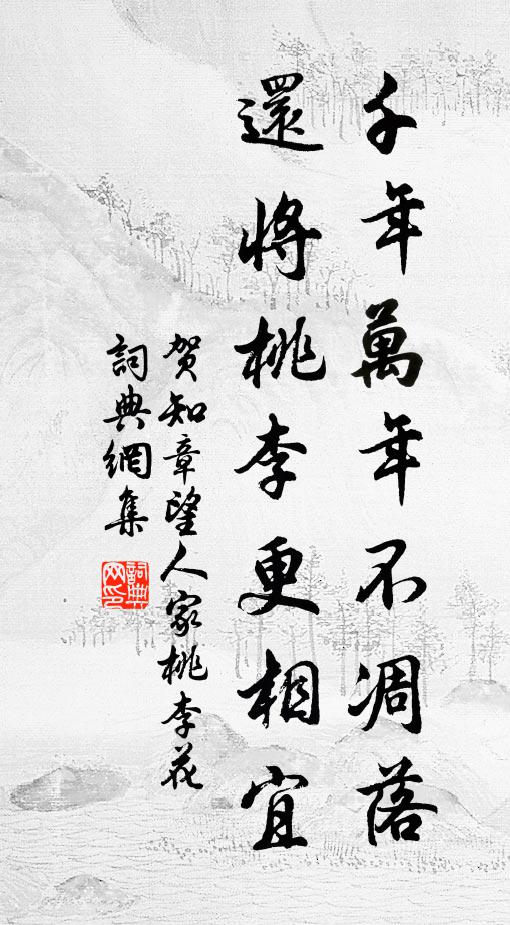 千年萬年不凋落
還將桃李更相宜
賀知章望人家桃李花
詞典網集
詞典網印